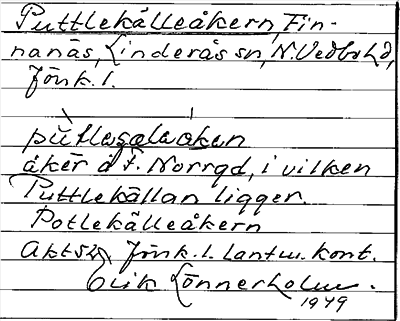 Puttlekälleåkern, Fin-
nanäs, Linderås sn, N. Vedbo hd,
Jönk. l.
åker å f. Norrgd, i vilken
Puttlekällan ligger.
Potlekälleåkern
Jönk. l. Lantm. kont.
Erik Lönnerholm.
1949